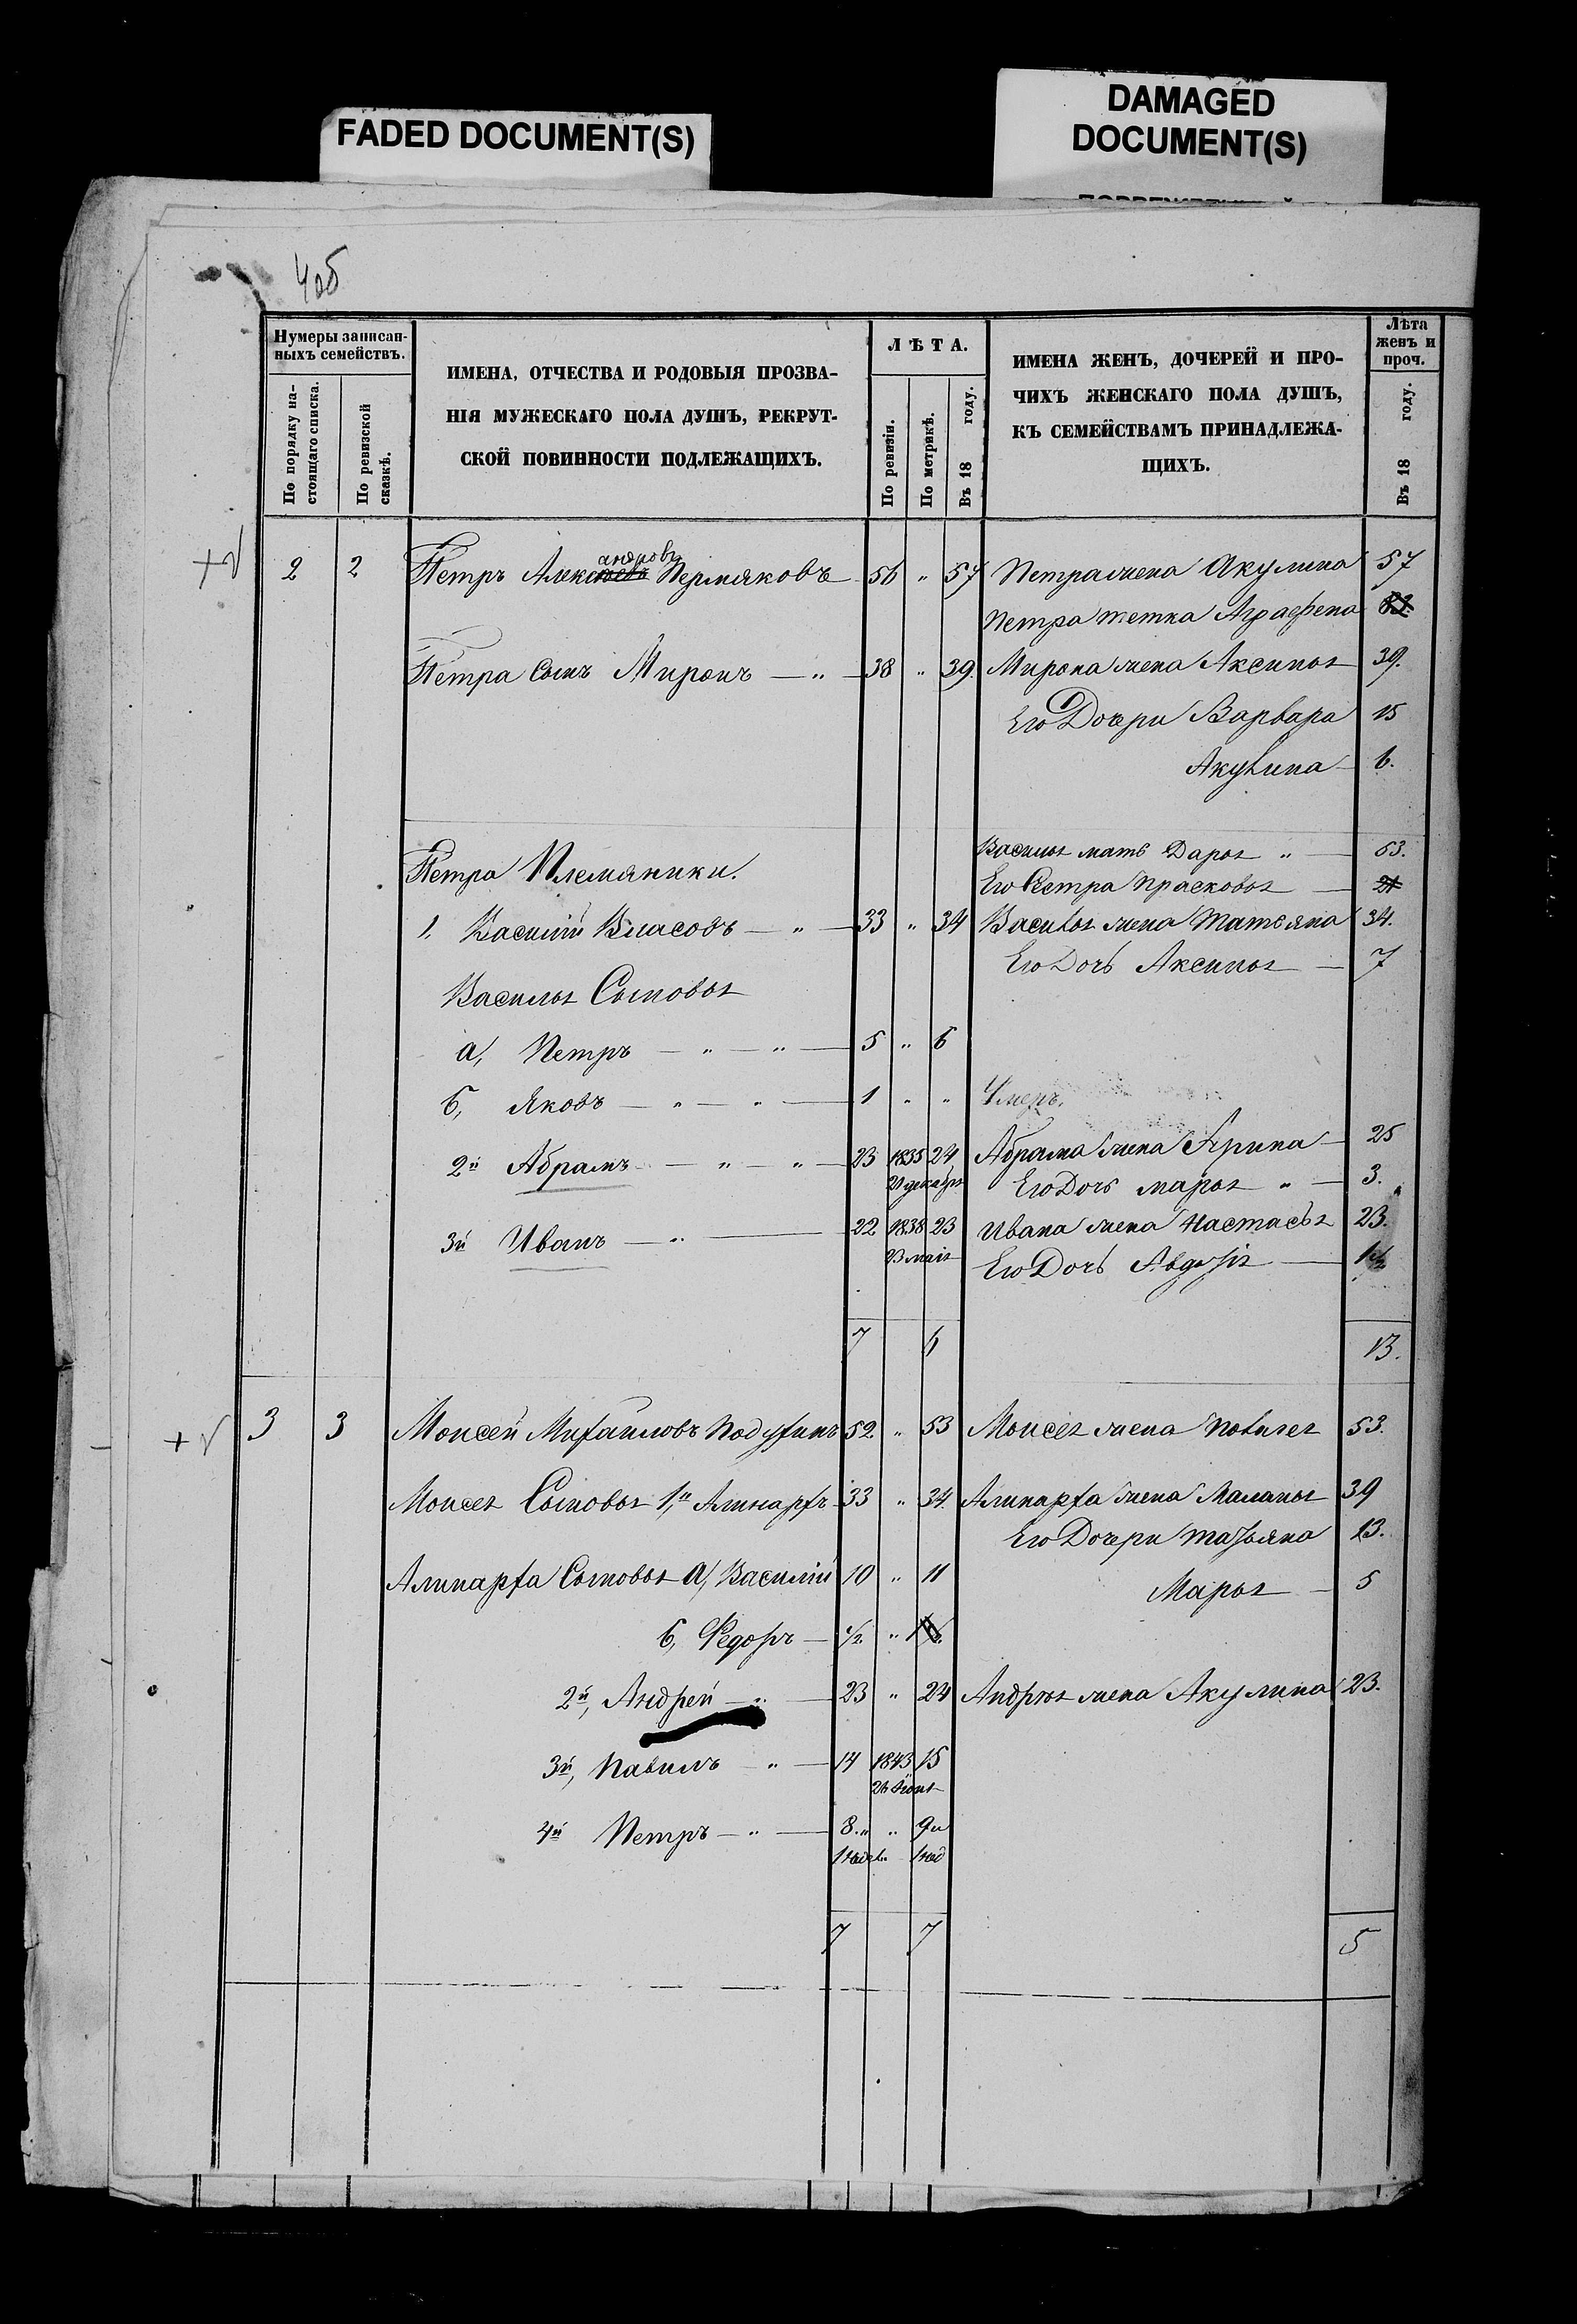 FADED DOCUMENT(S)
DAMAGED
DOCUMENT(S)
4об
Нумеры записан-
ныхъ семействъ.
По порядку на-
стоящаго списка.
По ревизской
сказкѣ.
ИМЕНА, ОТЧЕСТВА И РОДОВЫЯ ПРОЗВА-
НІЯ МУЖЕСКАГО ПОЛА ДУШЪ, РЕКРУТ-
СКОЙ ПОВИННОСТИ ПОДЛЕЖАЩИХЪ.
ЛѢТА.
По ревизіи.
По метрикѣ.
Въ 18 году.
ИМЕНА ЖЕНЪ, ДОЧЕРЕЙ И ПРО-
ЧИХЪ ЖЕНСКАГО ПОЛА ДУШЪ,
КЪ СЕМЕЙСТВАМЪ ПРИНАДЛЕЖА-
ЩИХЪ.
Лѣта
женъ и
проч.
Въ 18 году.
андровъ
2 2 Петръ Алексѣевъ Пермяковъ 56 " 57 Петра жена Акулина 57
Петра тетка Аграфена
Петра Сынъ Миронъ — " — 38 " 39. Мирона жена Аксинья 39.
Его Дочери Варвара 15
Акулина — 6.
Петра Племяники.
Василья мать Дарья " — 63.
Его Сестра Прасковья — 21
1. Василій Власовъ — " — 33 " 34 Василья жена Татьяна 34.
Его Дочь Аксинья — 7
Василья Сыновья
а, Петръ — " — " — 5 " 6
б, Яковъ — " — " — 1 " " Умеръ.
2й Абрамъ — " — " — 23 1835 24 Абрама жена Ирина — 25
21 декабря Его Дочь Марья " — 3.
3й Иванъ — " — 22 1838 23 Ивана жена Настасья 23.
23 мая Его Дочь Авдотья —
7 6 13.
3 3 Моисей Михайловъ Подухинъ 52 " 53 Моисея жена Пелагея 53.
Моисея Сыновья 1й Алинархъ 33 " 34. Алинарха жена Маланья 39
Его Дочери Татьяна 13.
Алинарха Сыновья а, Василій 10 " 11 Марья — 5
б, Федоръ — 1/2 "
2й, Андрей — " — 23 " 24 Андрея жена Акулина 23.
3й, Павилъ — " — 14 1843 15
26 Іюня
4й Петръ — " — 8 " " 9 "
1 нед. 1 нед
7 7 5